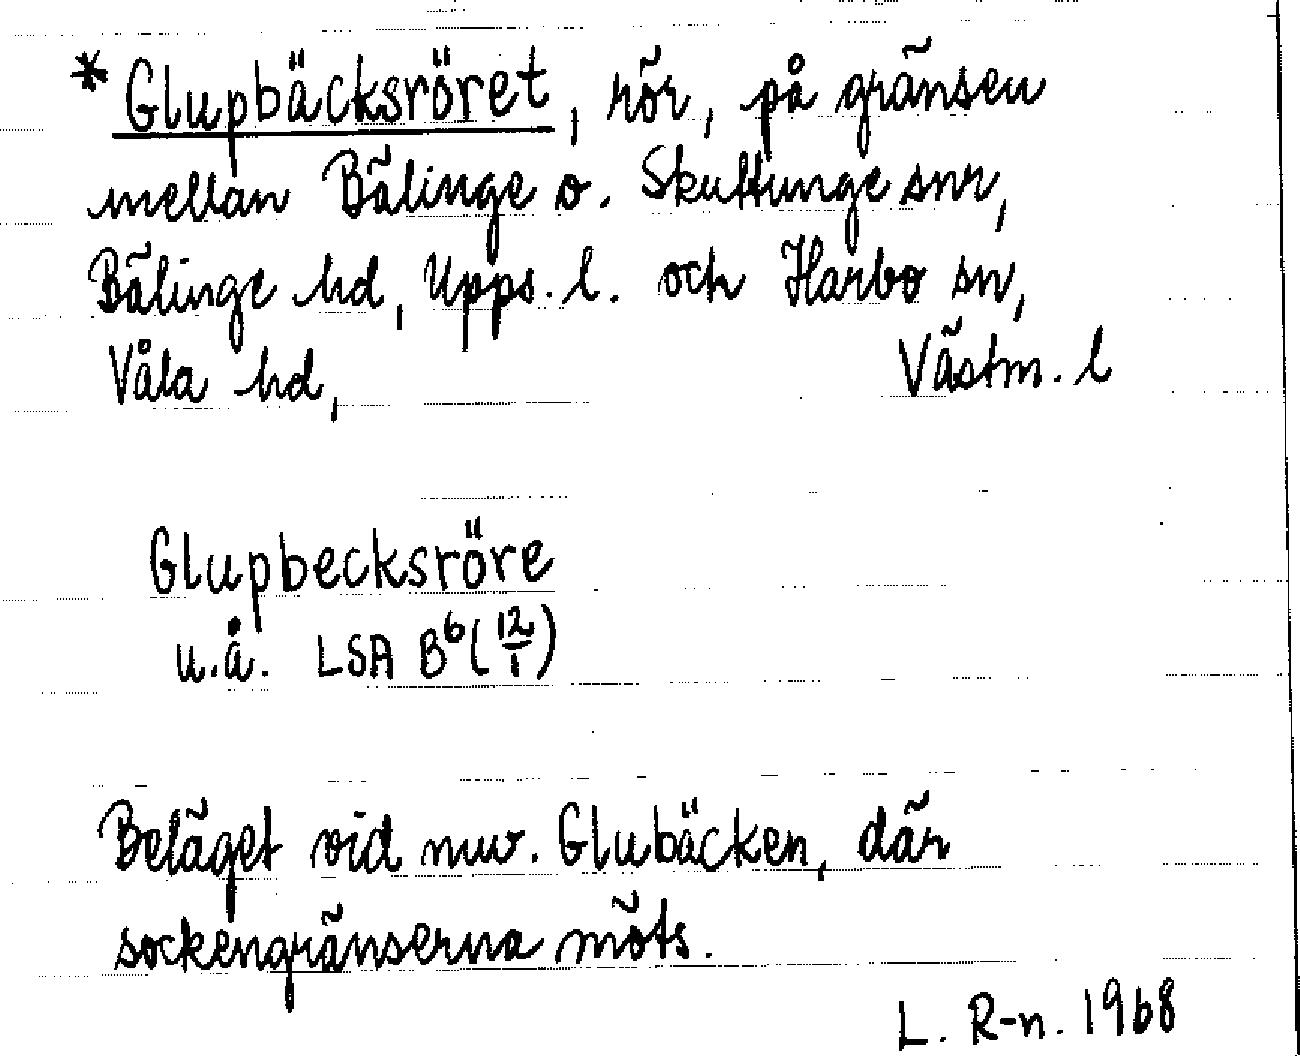 * Glupbäcksröret, rör, på gränsen
mellan Bälinge o. Skuttunge snr,
Bälinge hd, Upps. l. och Harbo sn,
Våla hd, Västm. l
Glupbecksröre
u.å. LSA B⁶(12/1)
Beläget vid nuv. Glubäcken, där
sockengränserna möts.
L. R-n. 1968